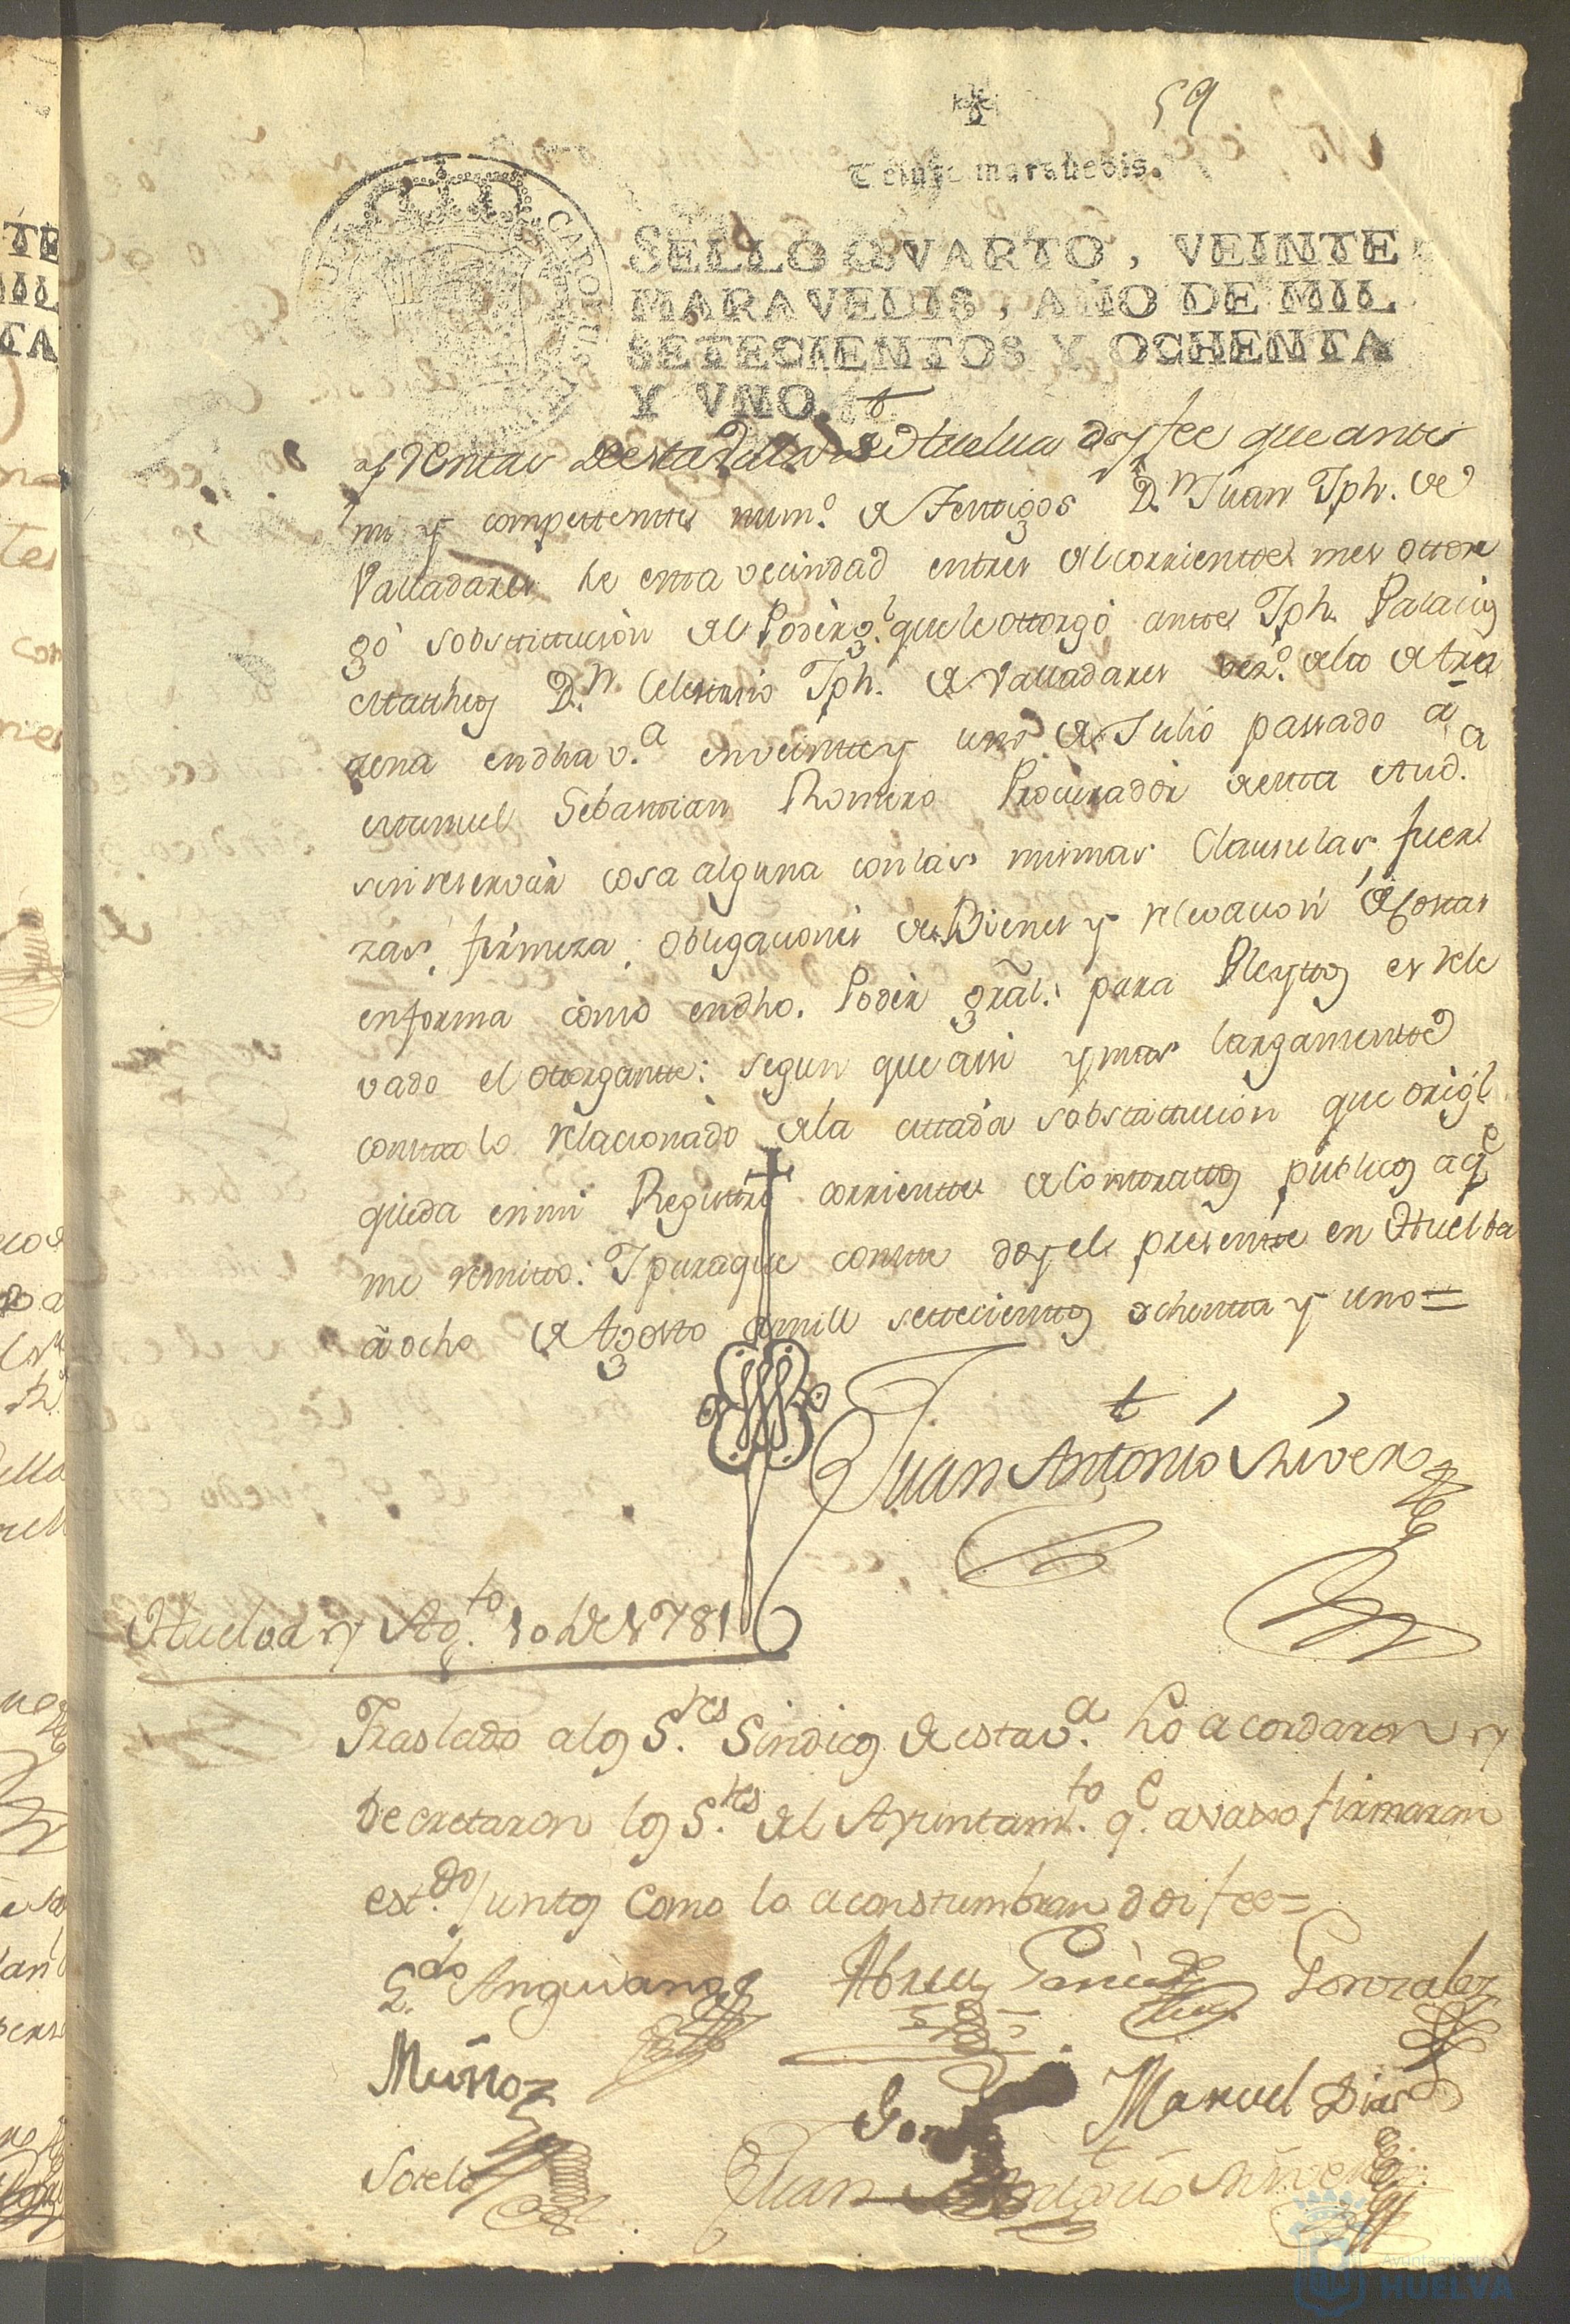 59
Veinte maravedis.
SELLO QVARTO, VEINTE
MARAVEDIS, AÑO DE MIL
SETECIENTOS Y OCHENTA
Y VNO.
y Rentas de esta Villa de Huelua doy fee que ante
mi y competente num.º de Testigos D.n Juan Jph. de
Valladares de esta vecindad en tres del corriente mes otor
gó sobstitución del Poder g.l que le otorgó ante Jph. Palacios
Matheos D.n Celestino Jph. de Valladares vez.º de la de Tra
gena en dha v.a en veinte y uno de Julio passado a
Manuel Sebastian Romero Procurador de esta Aud.a
sin reservar cosa alguna con las mismas Clausulas, fuer
zas, firmeza, obligaciones de Bienes y relevación de Costas
en forma como en dho. Poder gral. para Pleytos es rele
vado el otorgante: segun que assi y mas largamente
consta lo relacionado de la cittada sobstitución que origl.
queda en mi Registro corriente de Contratos publicos a q.e
me remito: Y para que conste doy el presente en Huelba
à ocho de Agosto de mill settecientos ochenta y uno=
Juan Antonio Rivero
Huelva y Ag.to 10 de 1781
Traslado a los S.res Sindicos de esta v.a Lo acordaron y
decretaron los S.res del Ayuntam.to q.e avaxo firmaron
est.do juntos como lo acostumbran doi fee=
L.do Anguiano Abreu Garcia Gonzalez
Muñoz Manuel Dias
Sotelo Juan Antonio Rivero
Ayuntamiento de
HUELVA